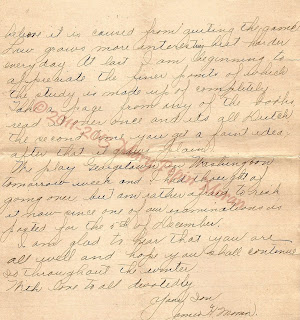 believe it is caused from quiting the game.
Law grows more interesting but harder
every day. At last I am beginning to
appreciate the finer points of which
the study is made up of completely.
Take a page from any of the books,
read over once and its all Dutch
the second time you get a faint idea,
after that it plain
We play Georgetown in Washington
tomorrow week and I thought of
going over but am rather afraid to risk
it now since one of our examinations is
posted for the 5th of December.
I am glad to hear that you are
all well and hope you shall continue
so throughout the winter.
With love to all devotedly
Your Son
James F. Moran.